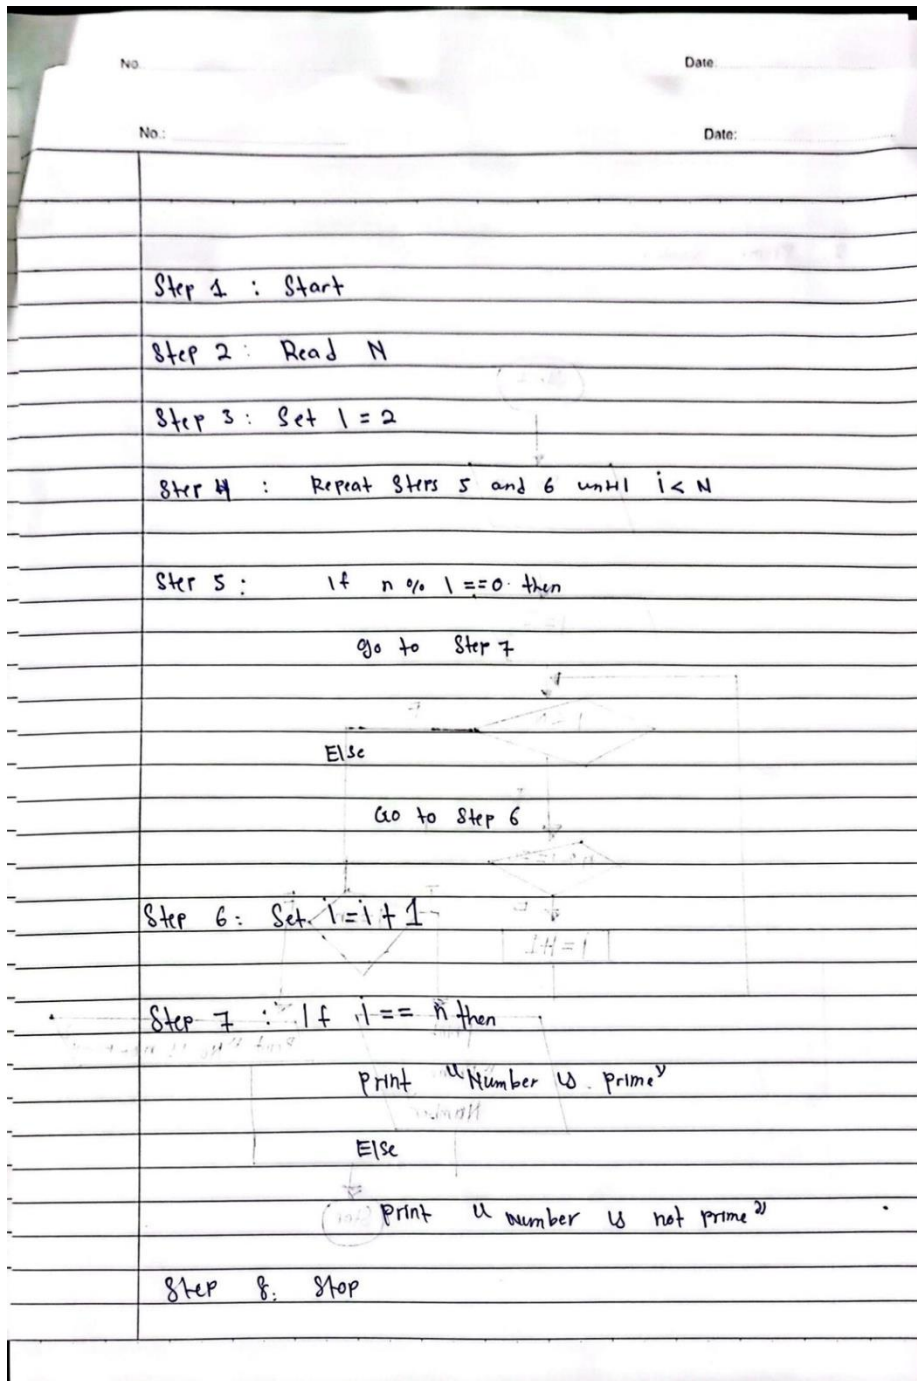 No.
Date.
No.:
Date:
Step 1 : Start
Step 2 : Read N
Step 3 : Set I = 2
Step 4 : Repeat Steps 5 and 6 until i < N
Step 5 : If n % I == 0 then
go to Step 7
Else
Go to Step 6
Step 6 : Set i = i + 1
Step 7 : If i == n then
Print "Number is prime"
Else
Print "number is not prime"
Step 8 : Stop